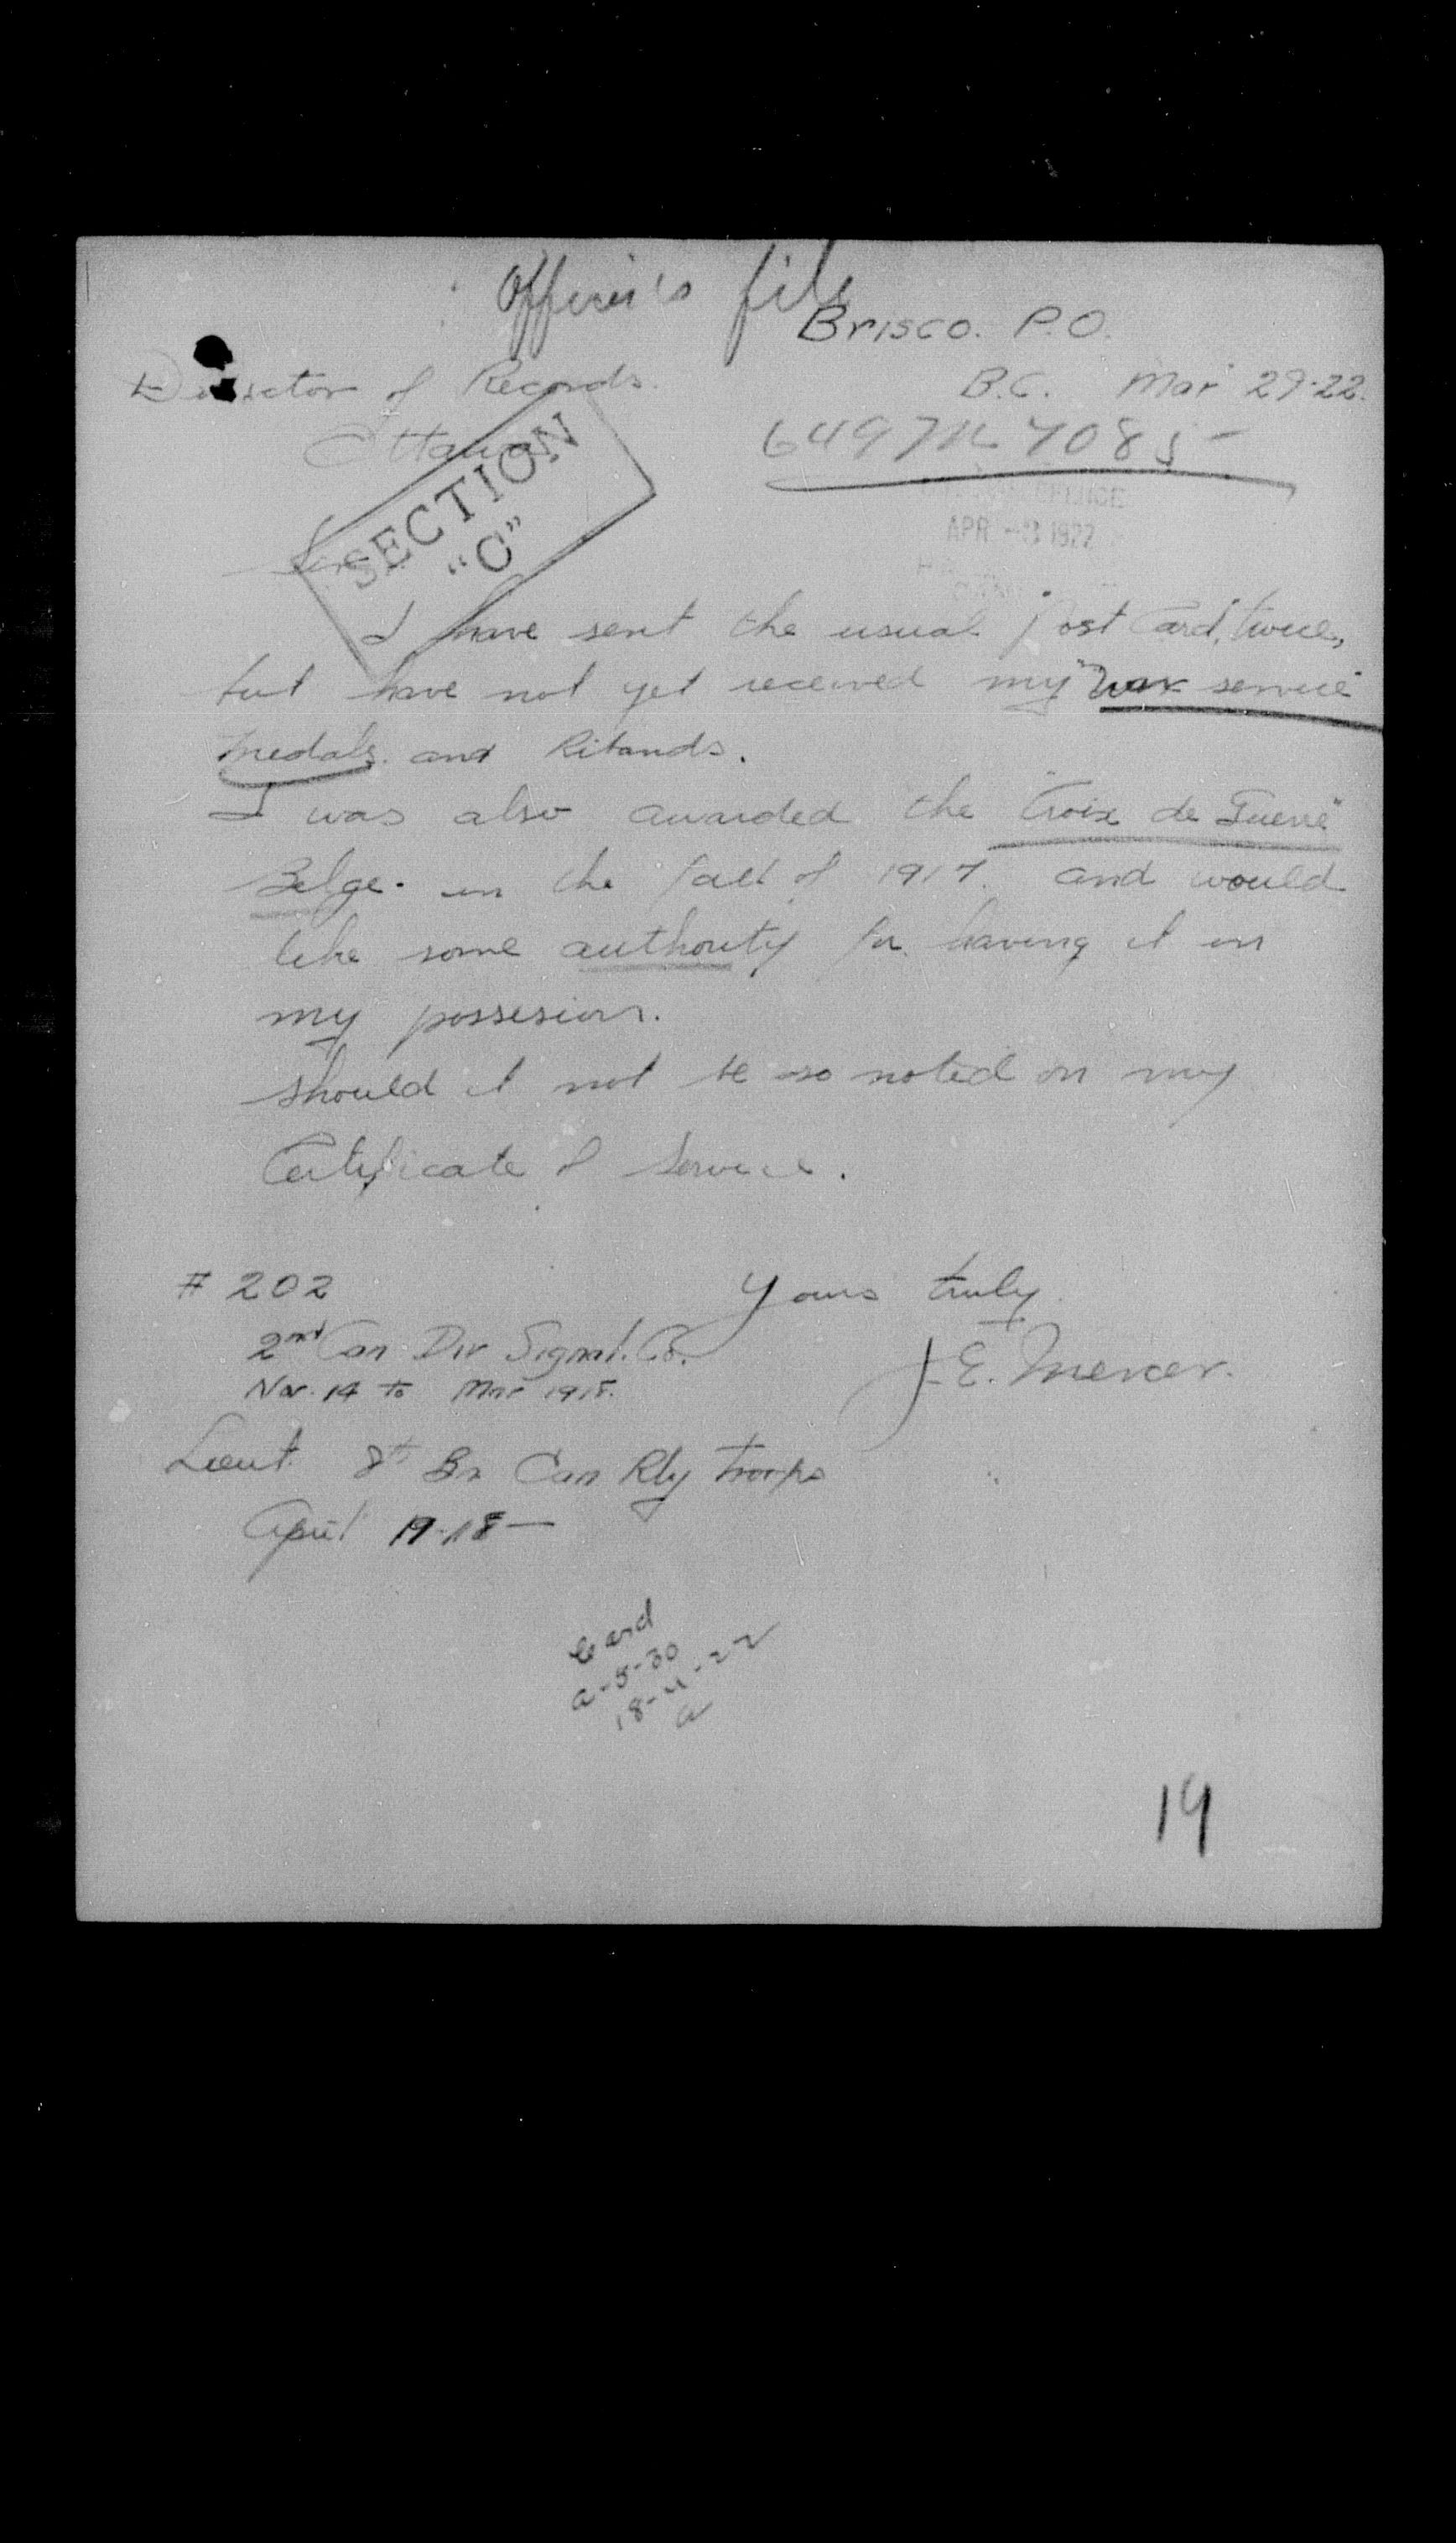 Officer's file
Brisco. P.O.
Director of Records.
B.C. Mar 29-22.
Ottawa
SECTION
"C"
APR 1922
Sir
I have sent the usual Post Card, twice,
but have not yet received my "War service"
medals and Ribands.
I was also awarded the "Croix de Guerre"
Belge. in the fall of 1917. and would
like some authority for having it in
my possesion.
should it not be so noted on my
Certificate of Service.
# 202
Yours truly
2nd Can Div Signal. Co.
J.E. Mercer.
Nov. 14 to Mar 1918.
Lieut. 8th Bn Can Rly Troops
April 19-18—
Card
a-5-30
18-4-22
a
14